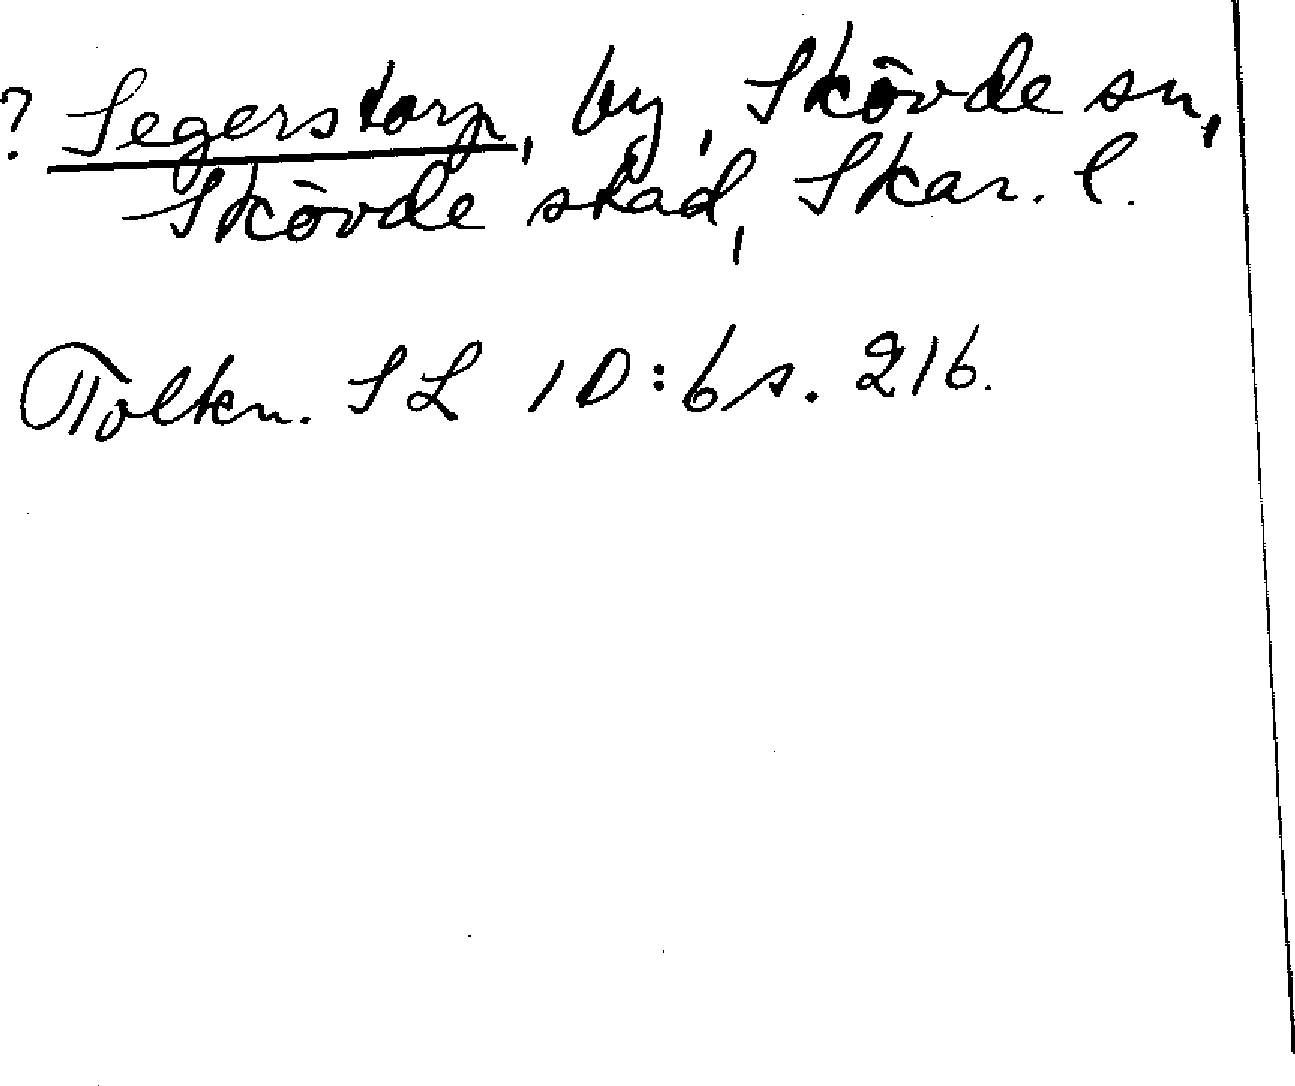 ? Segerstorp, by, Skövde sn,
Skövde stad, Skar. l.
Tolkn. SL 1D:6 s. 216.